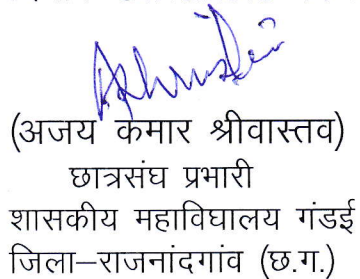 (अजय कुमार श्रीवास्तव)
छात्रसंघ प्रभारी
शासकीय महाविघालय गंडई
जिला–राजनांदगांव (छ.ग.)